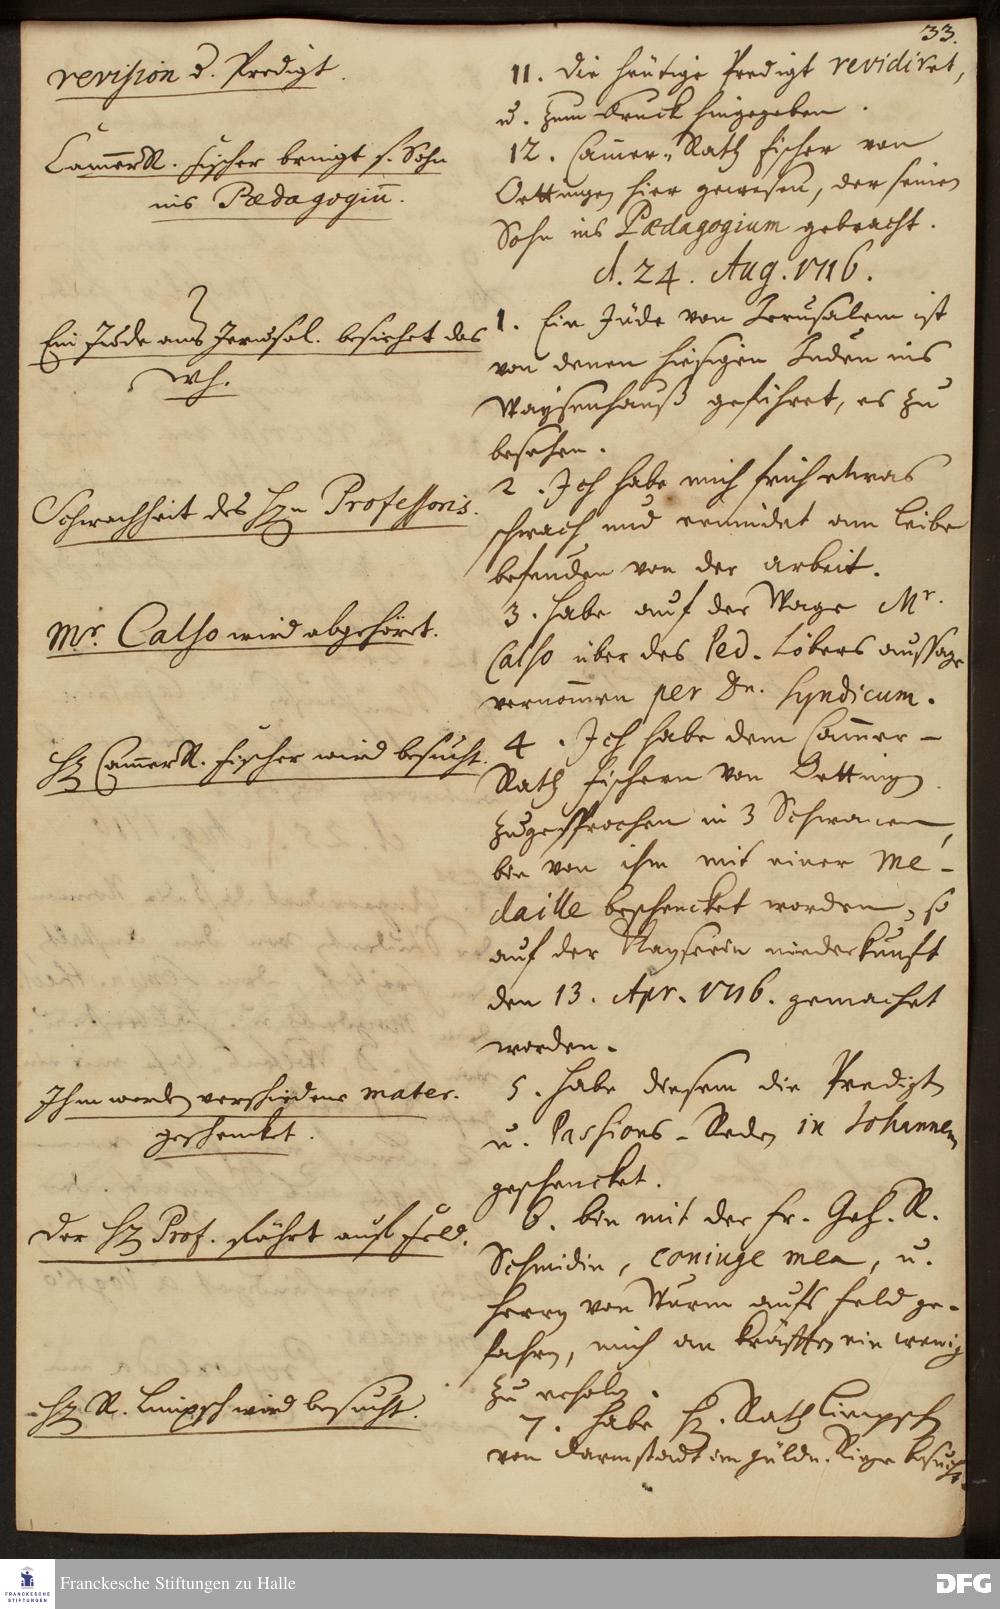 33.
revision d. Predigt.
CammerR. Fischer bringt s. Sohn
ins Pædagogiu.
Ein Jude aus Jerusal. besiehet das
Wh.
Schwachheit des Hrn Professoris.
Mr. Calso wird abgehöret.
Hr CammerR. Fischer wird besucht.
Ihm werden verschiedene mater.
geschencket.
Der Hr Prof. fährt aufs Feld.
Hr R. Limpsch wird besucht.
11. Die heutige Predigt revidiret,
u. zum Druck hingegeben.
12. Cammer-Rath Fischer von
Oettingen hier gewesen, der seinen
Sohn ins Pædagogium gebracht.
d. 24. Aug. 1716.
1. Ein Jude von Jerusalem ist
von denen hiesigen Juden ins
Waysenhauß geführet, es zu
besehen.
2. Ich habe mich früh etwas
schwach und ermüdet am Leibe
befunden von der arbeit.
3. Habe auf der Wage Mr.
Calso über des Ped. Löbers aussage
vernommen per Dn. Syndicum.
4. Ich habe dem Cammer-
Rath Fischern von Oettingen
zugesprochen in 3 Schwanen,
bin von ihm mit einer Me-
daille beschencket worden, so
auf der Kayserin niederkunft
den 13. Apr. 1716. gemachet
worden.
5. Habe diesem die Predigten
u. Passions-Reden in Johannem
geschencket.
6. bin mit der Fr. Geh. R.
Schmidin, coniuge mea, u.
Herrn von Wurm aufs Feld ge-
fahren, mich an kräfften ein wenig
zu erholen.
7. Habe H. Rath Limpsch
von Darmstadt im güldn. Ringe besucht.
Franckesche Stiftungen zu Halle
FRANCKESCHE
STIFTUNGEN
DFG